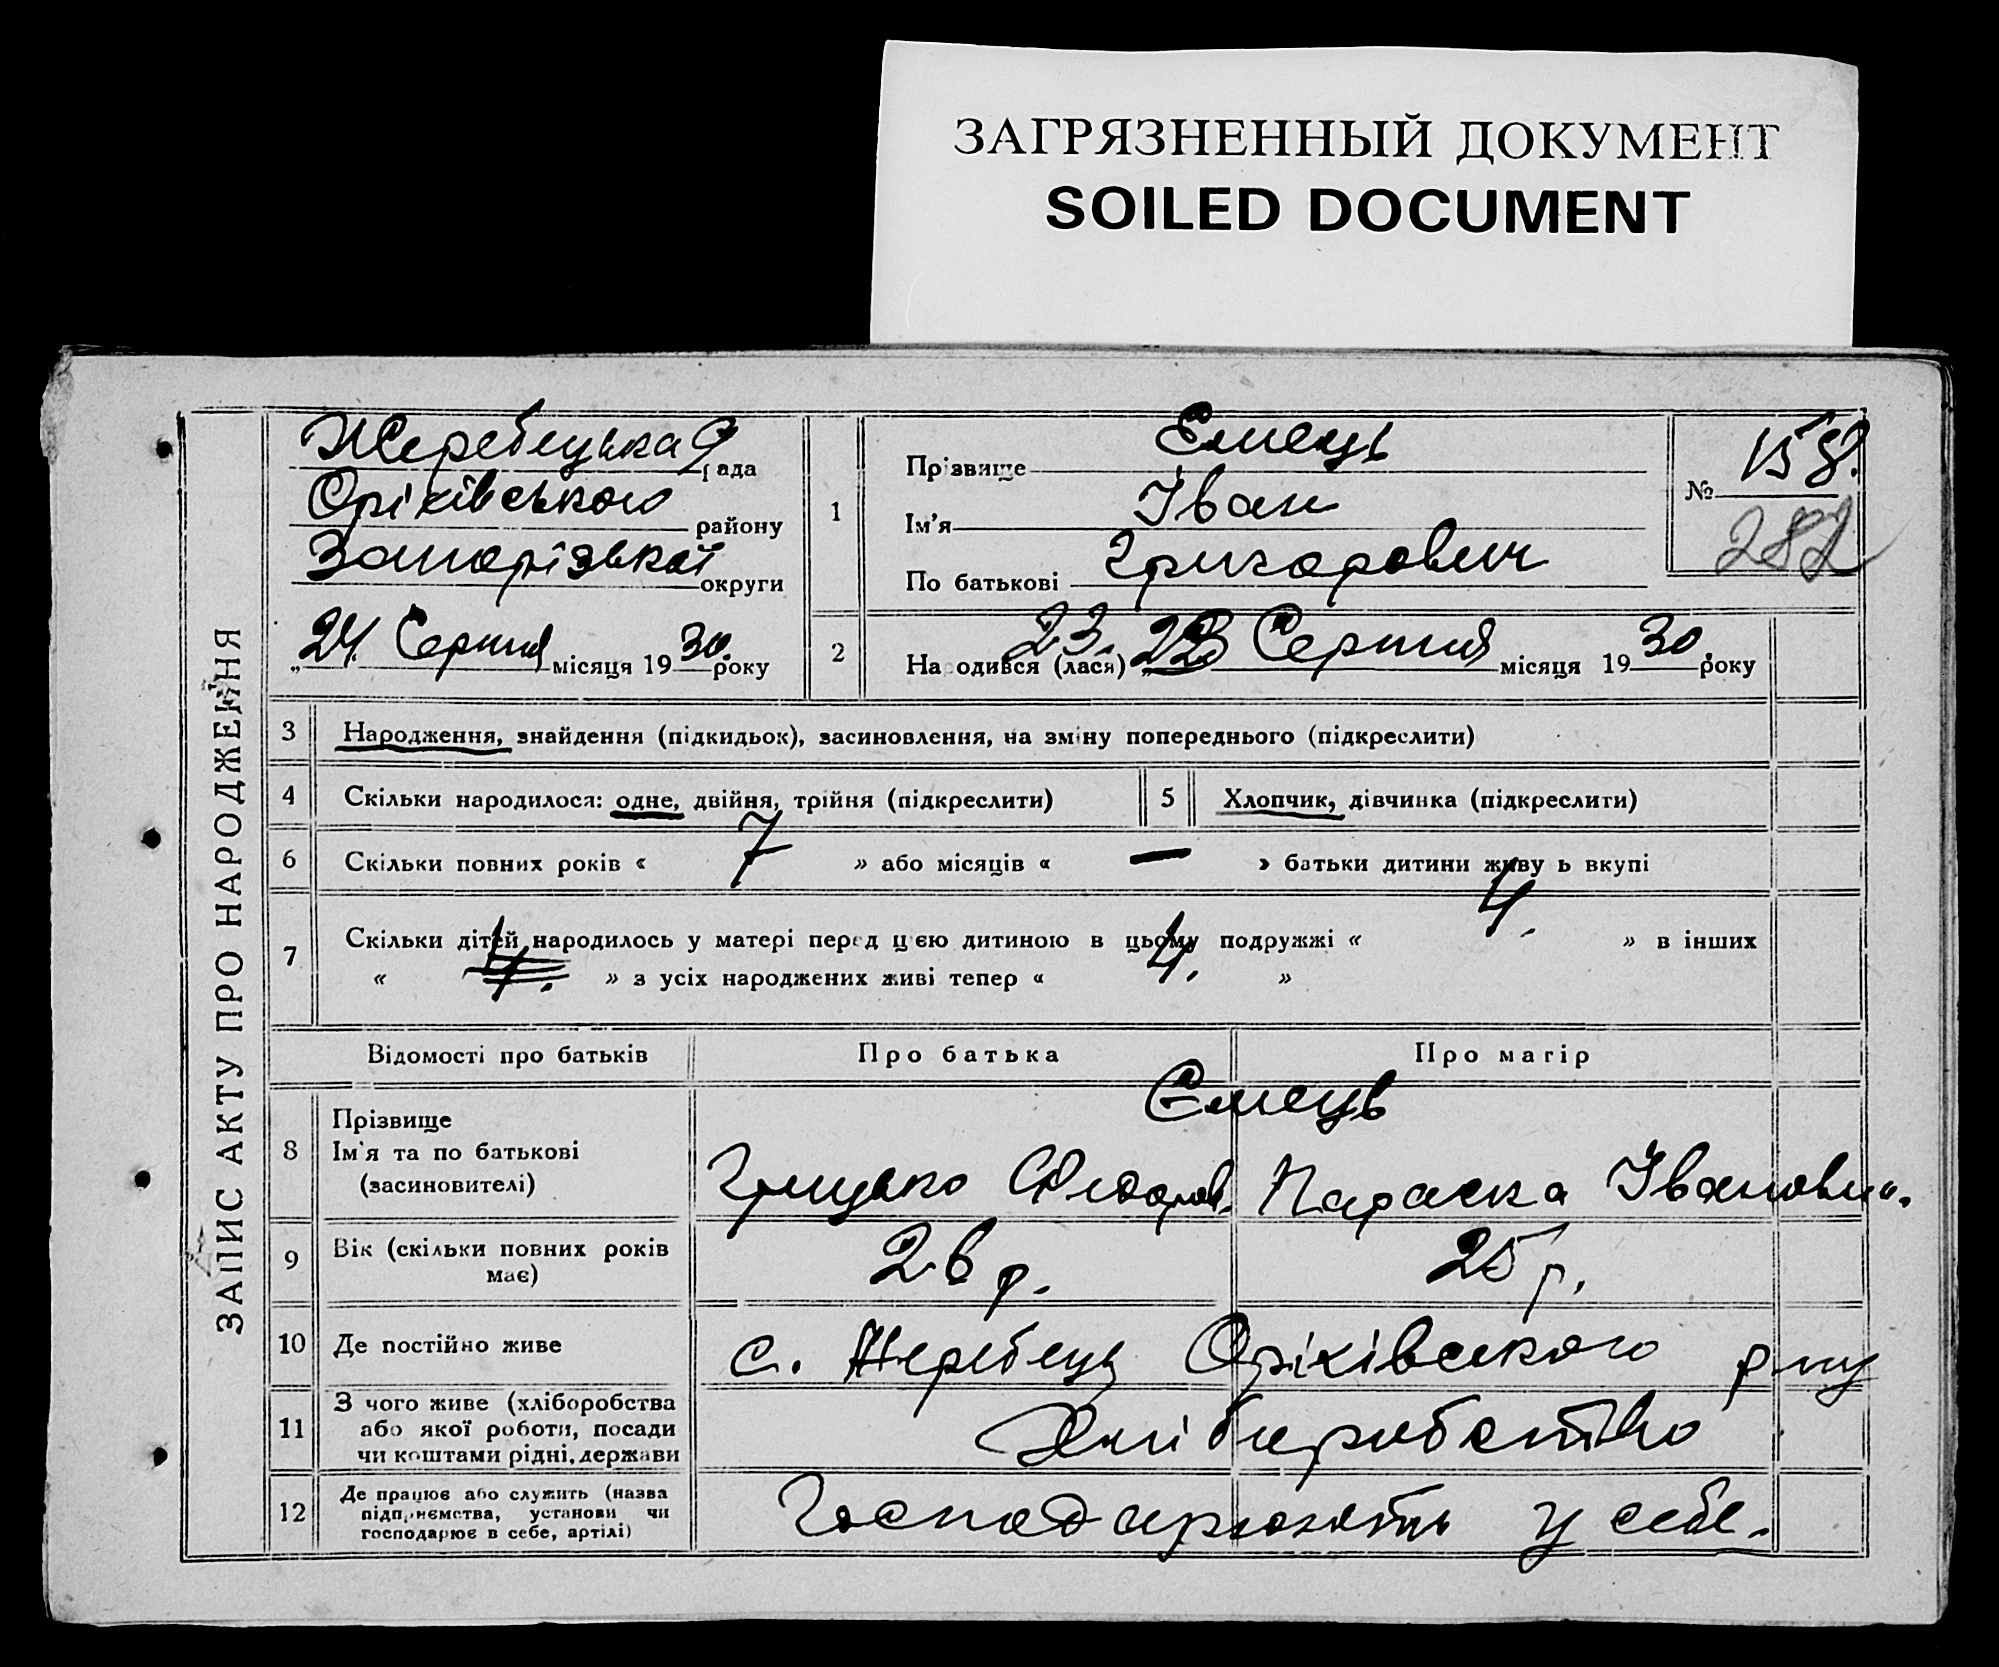 ЗАГРЯЗНЕННЫЙ ДОКУМЕНТ
SOILED DOCUMENT
ЗАПИС АКТУ ПРО НАРОДЖЕННЯ
Жеребецька рада
Оріхівського району
Запорізької округи
„24 Серпня місяця 1930 року
1
Прізвище Ємець
Ім'я Іван
По батькові Григорович
№ 158.
282
2
Народився (лася) 23. 23 Серпня місяця 1930 року
3 Народження, знайдення (підкидьок), засиновлення, на зміну попереднього (підкреслити)
4 Скільки народилося: одне, двійня, трійня (підкреслити) 5 Хлопчик, дівчинка (підкреслити)
6 Скільки повних років « 7 » або місяців « — » батьки дитини живуть вкупі
7 Скільки дітей народилось у матері перед цією дитиною в цьому подружжі « 4. » в інших
« 4. » з усіх народжених живі тепер « 4. »
Відомості про батьків Про батька Про матір
8 Прізвище Ємець
Ім'я та по батькові Грицько Федоров. Параска Іванови.
(засновителі)
9 Вік (скільки повних років має) 26 р. 25 р.
10 Де постійно живе с. Жеребець Оріхівського р-ну
11 З чого живе (хліборобства або якої роботи, посади чи коштами рідні, держави Хліборобство
12 Де працює або служить (назва підприємства, установи чи господарює в себе, артілі) Господарюють у себе.